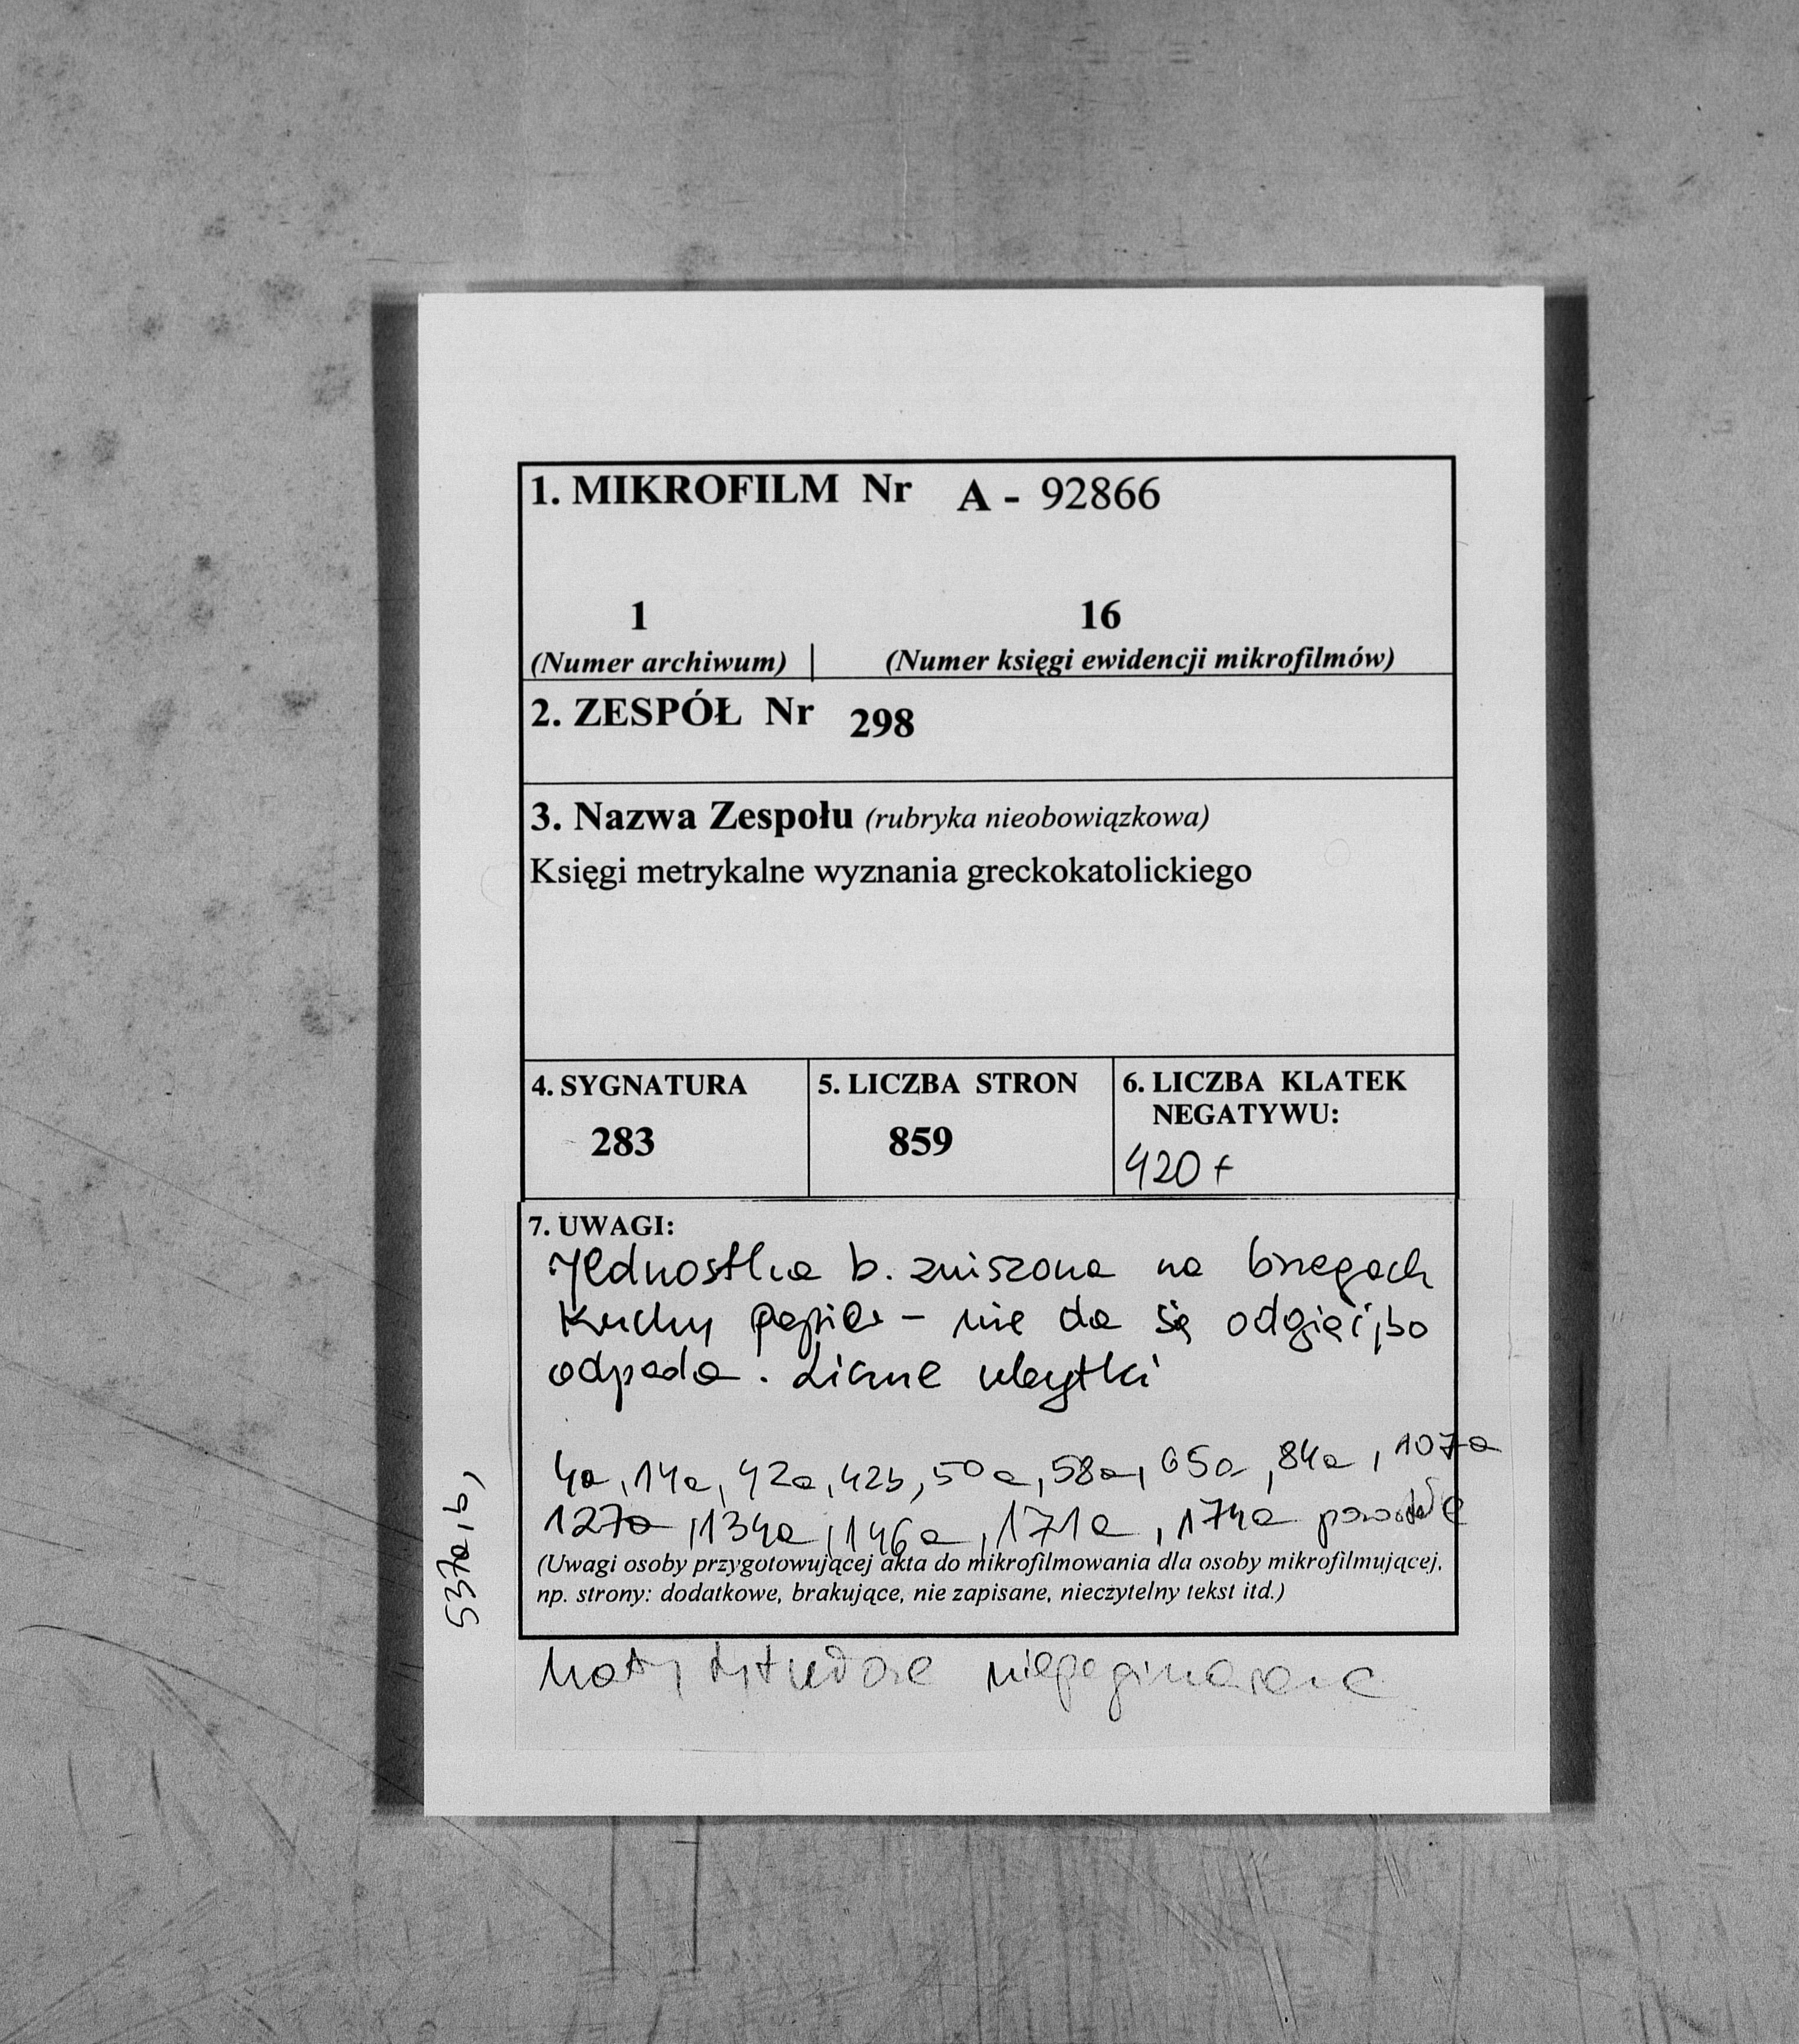 1. MIKROFILM Nr A - 92866
1 16
(Numer archiwum) (Numer księgi ewidencji mikrofilmów)
2. ZESPÓŁ Nr 298
3. Nazwa Zespołu (rubryka nieobowiązkowa)
Księgi metrykalne wyznania greckokatolickiego
4. SYGNATURA 5. LICZBA STRON 6. LICZBA KLATEK
NEGATYWU:
283 859
420 +
7. UWAGI:
Jednostka b. zniszona na brzegach
Kruchy papier – nie da się odgiąć, bo
odpada. Liczne ubytki
4a, 14a, 42a, 42b, 50a, 58a, 65a, 84a, 107a
127a, 134a, 146a, 171a, 174a
537a, b,
(Uwagi osoby przygotowującej akta do mikrofilmowania dla osoby mikrofilmującej,
np. strony: dodatkowe, brakujące, nie zapisane, nieczytelny tekst itd.)
niepaginowane